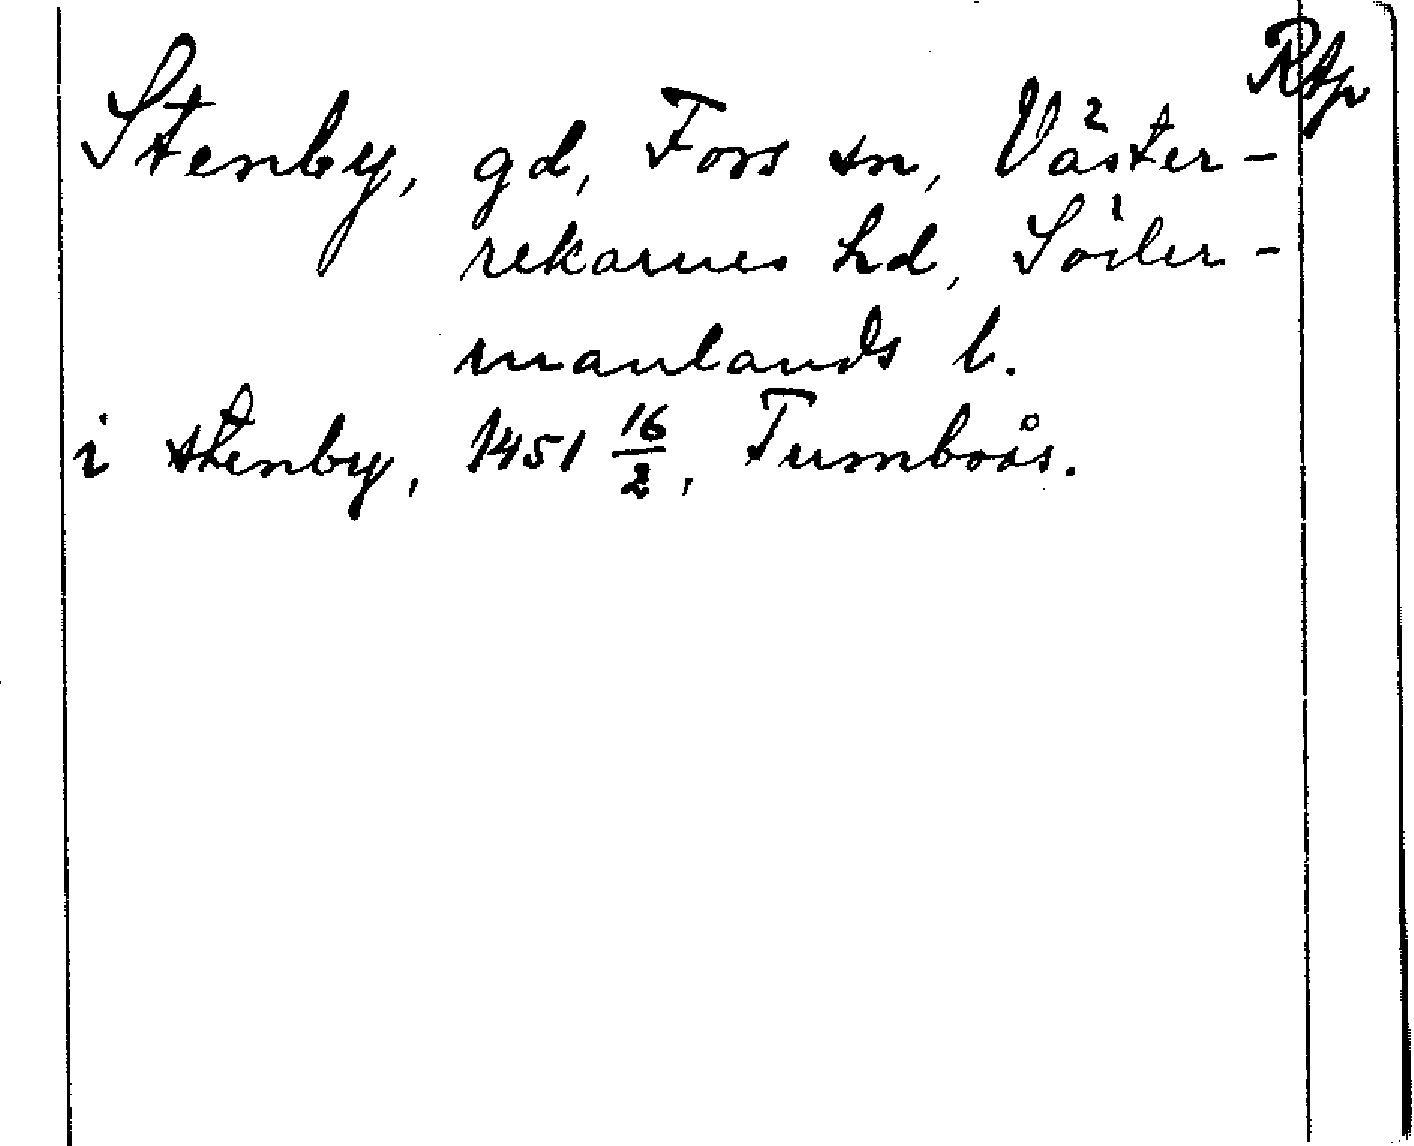 Rtp
Stenby, gd, Fors sn, Väster-
rekarnes hd, Söder-
manlands l.
i stenby, 1451 16/2, Tumboås.